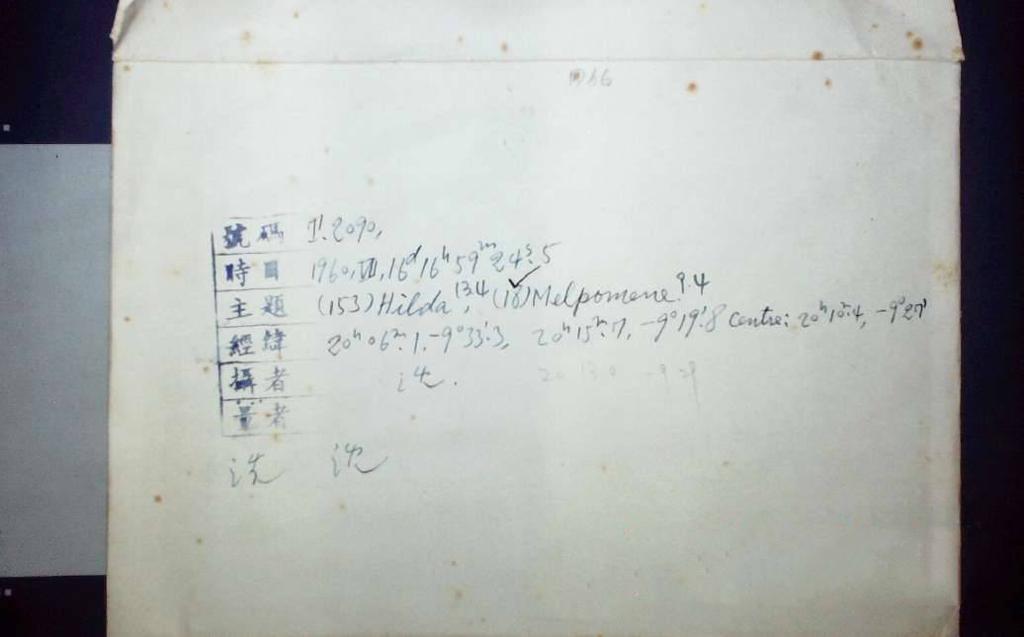 號碼 I'.2090,
時日 1960, VII, 16ᵈ16ʰ59ᵐ24ˢ.5
主題 (153)Hilda 13.4, (18)Melpomene 9.4 ✓
經緯 20ʰ06ᵐ.1, -9°33'.3, 20ʰ15ᵐ.7, -9°19'.8 Centre: 20ʰ10ᵐ.4, -9°27'
攝者 沈. 20 13 0 -9 29
量者
洗 沈